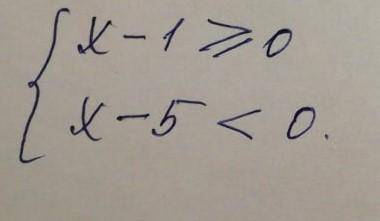 x - 1 ⩾ 0
x - 5 < 0.